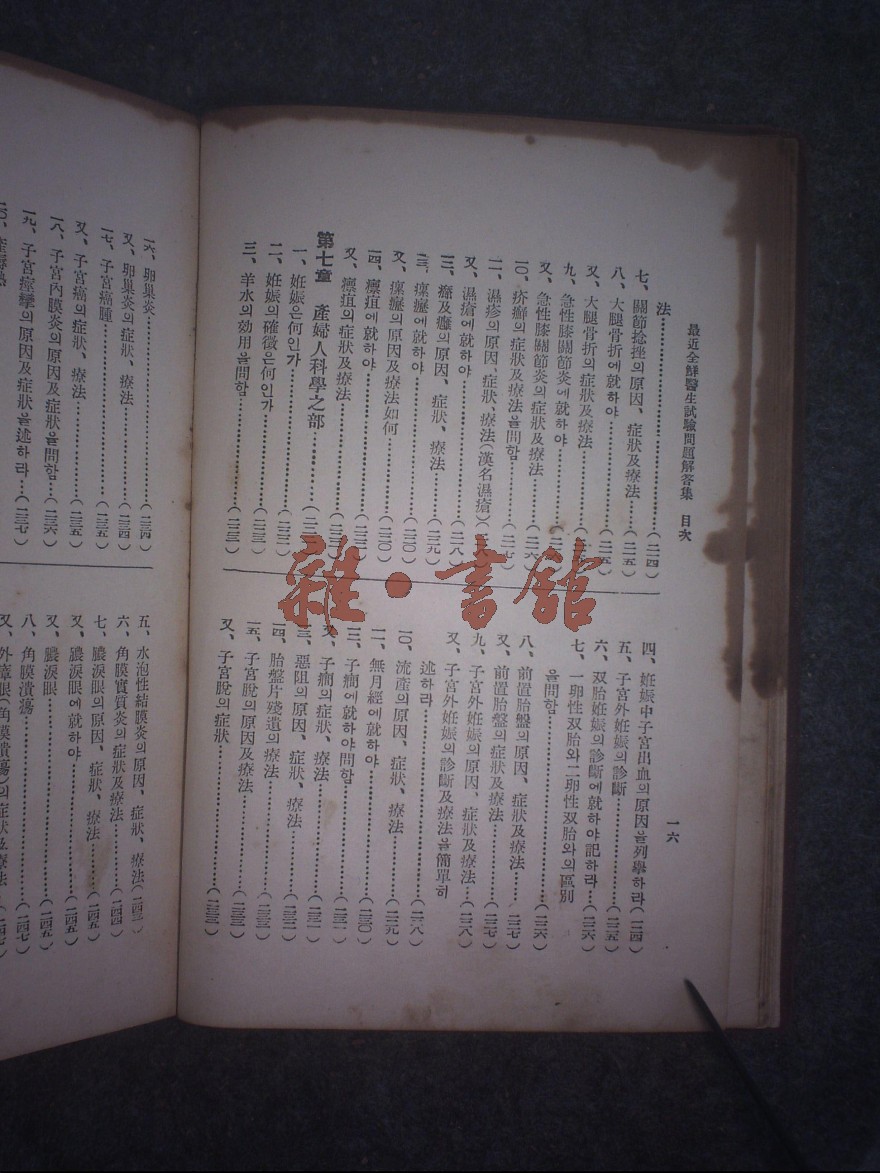 最近全鮮醫生試驗問題解答集 目次
一六
法……(二一四)
七、關節捻挫의原因、症狀及療法……(二一五)
八、大腿骨折에就하야……(二一五)
又、大腿骨折의症狀及療法
九、急性膝關節炎에就하야
又、急性膝關節炎의症狀及療法……(二一六)
一〇、疥癬의症狀及療法을問함……(二一七)
二、濕疹의原因、症狀、療法(漢名濕瘡)
又、濕瘡에就하야……(二一八)
三、療法……(二一九)
三、瘰癧에就하야……(二二〇)
又、瘰癧의原因及療法如何……(二二〇)
一四、癤疽에就하야
又、癤疽의症狀及療法
第七章 產婦人科學之部
一、妊娠은何인가……(二二二)
二、妊娠의確徵은何인가……(二二三)
三、羊水의効用을問함……(二二三)
四、妊娠中子宮出血의原因을列擧하라(二二四)
五、子宮外妊娠의診斷……(二二五)
六、双胎妊娠의診斷에就하야記하라…(二二六)
七、一卵性双胎와二卵性双胎와의區別
을問함……(二二六)
八、前置胎盤의原因、症狀及療法…(二二七)
又、前置胎盤의症狀及療法……(二二七)
九、子宮外妊娠의原因、症狀及療法…(二二八)
又、子宮外妊娠의診斷及療法을簡單히
述하라……(二二八)
一〇、流產의原因、症狀、療法……(二二九)
一一、無月經에就하야……(二三〇)
三、子癎에就하야問함……(二三一)
又、子癎의症狀、療法……(二三一)
三、惡阻의原因、症狀、療法……(二三二)
一四、胎盤片殘遺의療法……(二三二)
一五、子宮脫의原因及療法……(二三三)
又、子宮脫의症狀……(二三三)
一六、卵巢炎……(二三四)
又、卵巢炎의症狀、療法……(二三四)
一七、子宮癌腫……(二三五)
又、子宮癌의症狀、療法……(二三五)
一八、子宮內膜炎의原因及症狀을問함…(二三六)
一九、子宮痙攣의原因及症狀을述하라…(二三七)
五、水泡性結膜炎의原因、症狀、療法(二四三)
六、角膜實質炎의症狀及療法……(二四四)
七、膿淚眼의原因、症狀、療法……(二四五)
又、膿淚眼에就하야……(二四五)
又、膿淚眼……(二四五)
八、角膜潰瘍……(二四七)
雜·書舘